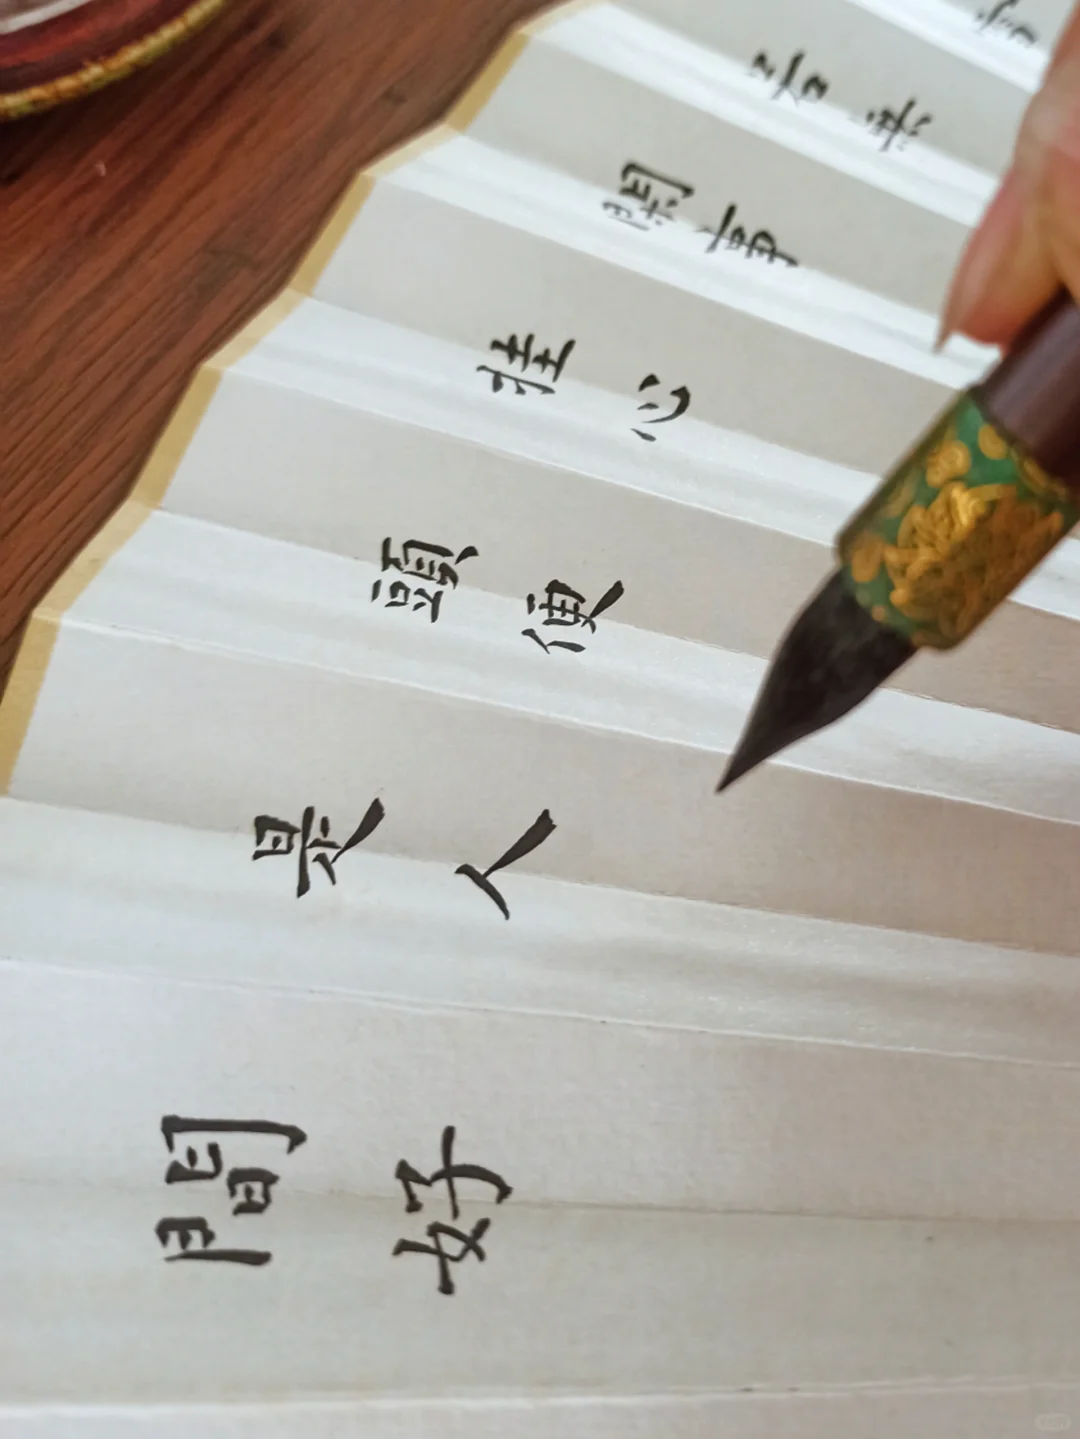 若無
閑事
挂心
頭便
是人
間好